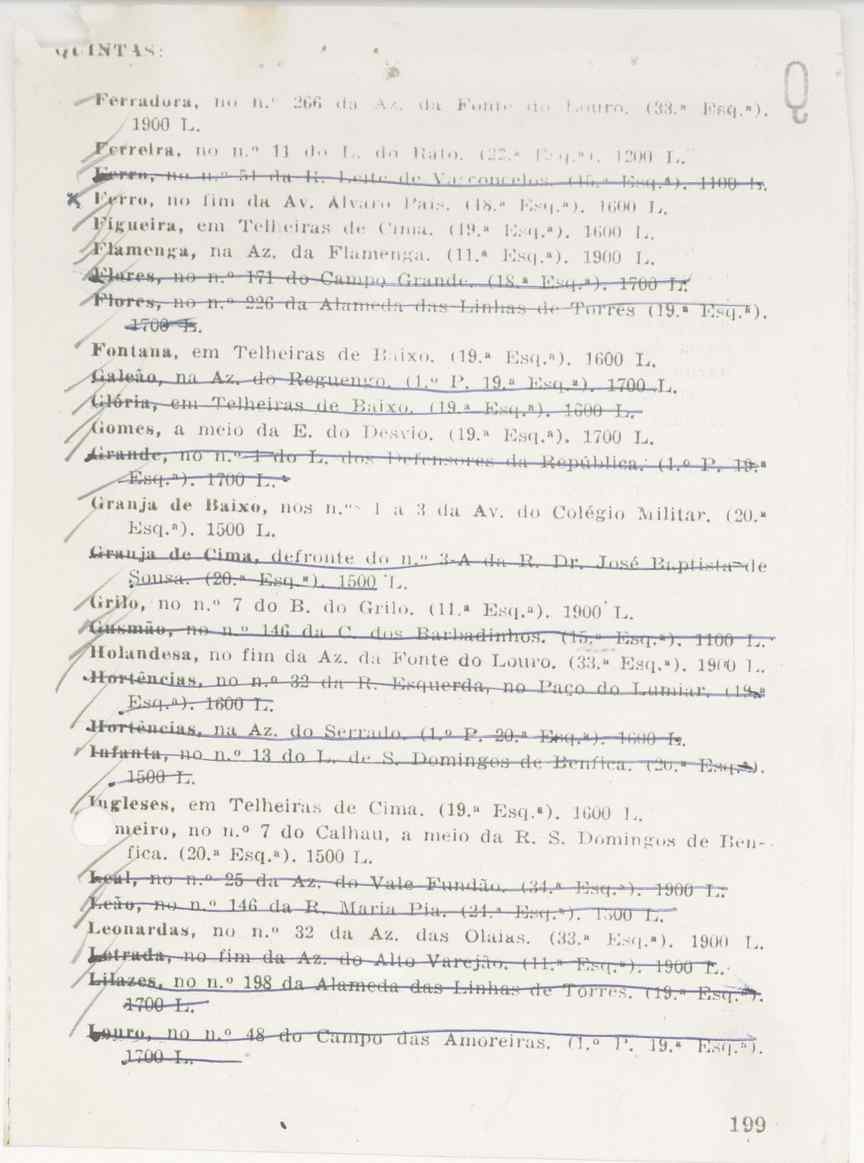 QUINTAS:
Q
Ferradora, no n.º 266 da Az. da Fonte do Louro. (33.ª Esq.ª).
1900 L.
Ferreira, no n.º 11 do L. do Rato. (22.ª Esq.ª). 1200 L.
Ferro, no n.º 51 da R. Leite de Vasconcelos. (15.ª Esq.ª). 1100 L.
Ferro, no fim da Av. Álvaro Pais. (18.ª Esq.ª). 1600 L.
Figueira, em Telheiras de Cima. (19.ª Esq.ª). 1600 L.
Flamenga, na Az. da Flamenga. (11.ª Esq.ª). 1900 L.
Flores, no n.º 171 do Campo Grande. (18.ª Esq.ª). 1700 L.
Flores, no n.º 226 da Alameda das Linhas de Torres (19.ª Esq.ª).
1700 L.
Fontana, em Telheiras de Baixo. (19.ª Esq.ª). 1600 L.
Galeão, na Az. do Reguengo. (1.º P. 19.ª Esq.ª). 1700 L.
Glória, em Telheiras de Baixo. (19.ª Esq.ª). 1600 L.
Gomes, a meio da E. do Desvio. (19.ª Esq.ª). 1700 L.
Grande, no n.º 1 do L. dos Defensores da República. (1.º P. 19.ª
Esq.ª). 1700 L.
Granja de Baixo, nos n.ºˢ 1 a 3 da Av. do Colégio Militar. (20.ª
Esq.ª). 1500 L.
Granja de Cima, defronte do n.º 3-A da R. Dr. José Baptista de
Sousa. (20.ª Esq.ª). 1500 L.
Grilo, no n.º 7 do B. do Grilo. (11.ª Esq.ª). 1900 L.
Gusmão, no n.º 146 da C. dos Barbadinhos. (15.ª Esq.ª). 1100 L.
Holandesa, no fim da Az. da Fonte do Louro. (33.ª Esq.ª). 1900 L.
Hortências, no n.º 32 da R. Esquerda, no Paço do Lumiar. (19.ª
Esq.ª). 1600 L.
Hortências, na Az. do Serrado. (1.º P. 20.ª Esq.ª). 1600 L.
Infanta, no n.º 13 do L. de S. Domingos de Benfica. (20.ª Esq.ª).
1500 L.
Ingleses, em Telheiras de Cima. (19.ª Esq.ª). 1600 L.
meiro, no n.º 7 do Calhau, a meio da R. S. Domingos de Ben-
fica. (20.ª Esq.ª). 1500 L.
Leal, no n.º 25 da Az. do Vale Fundão. (34.ª Esq.ª). 1900 L.
Leão, no n.º 146 da R. Maria Pia. (24.ª Esq.ª). 1300 L.
Leonardas, no n.º 32 da Az. das Olaias. (33.ª Esq.ª). 1900 L.
Letrada, no fim da Az. do Alto Varejão. (11.ª Esq.ª). 1900 L.
Lilazes, no n.º 198 da Alameda das Linhas de Torres. (19.ª Esq.ª).
1700 L.
Louro, no n.º 48 do Campo das Amoreiras. (1.º P. 19.ª Esq.ª).
1700 L.
199